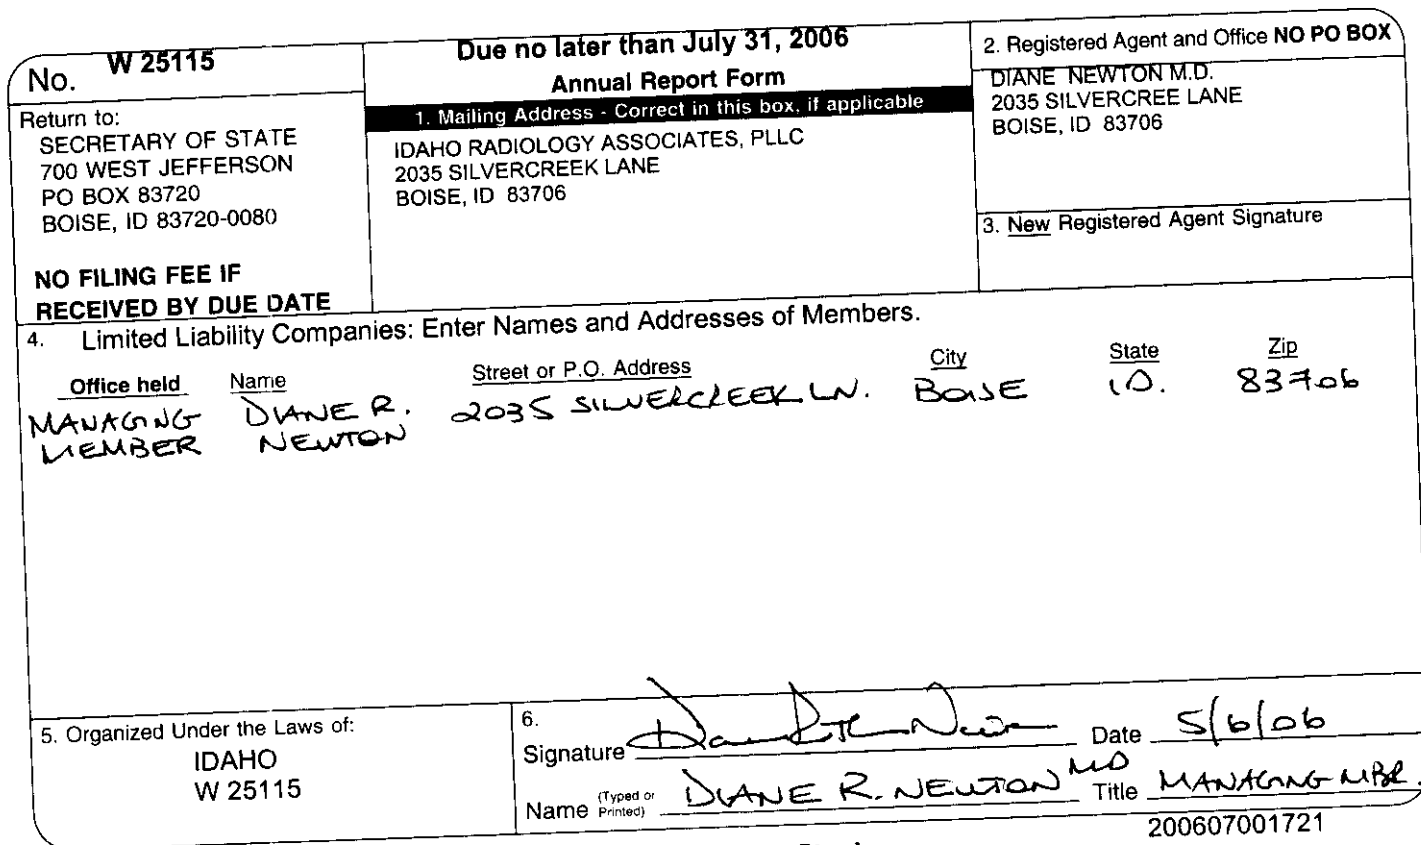 No. W 25115
Return to:
SECRETARY OF STATE
700 WEST JEFFERSON
PO BOX 83720
BOISE, ID 83720-0080
NO FILING FEE IF
RECEIVED BY DUE DATE
Due no later than July 31, 2006
Annual Report Form
1. Mailing Address - Correct in this box, if applicable
IDAHO RADIOLOGY ASSOCIATES, PLLC
2035 SILVERCREEK LANE
BOISE, ID 83706
2. Registered Agent and Office NO PO BOX
DIANE NEWTON M.D.
2035 SILVERCREE LANE
BOISE, ID 83706
3. New Registered Agent Signature
4. Limited Liability Companies: Enter Names and Addresses of Members.
Office held Name Street or P.O. Address City State Zip
MANAGING DIANE R. 2035 SILVERCREEK LN. BOISE ID. 83706
MEMBER NEWTON
5. Organized Under the Laws of:
IDAHO
W 25115
6.
Signature Date 5/6/06
Name (Typed or Printed) DIANE R. NEWTON MD Title MANAGING MBR.
200607001721